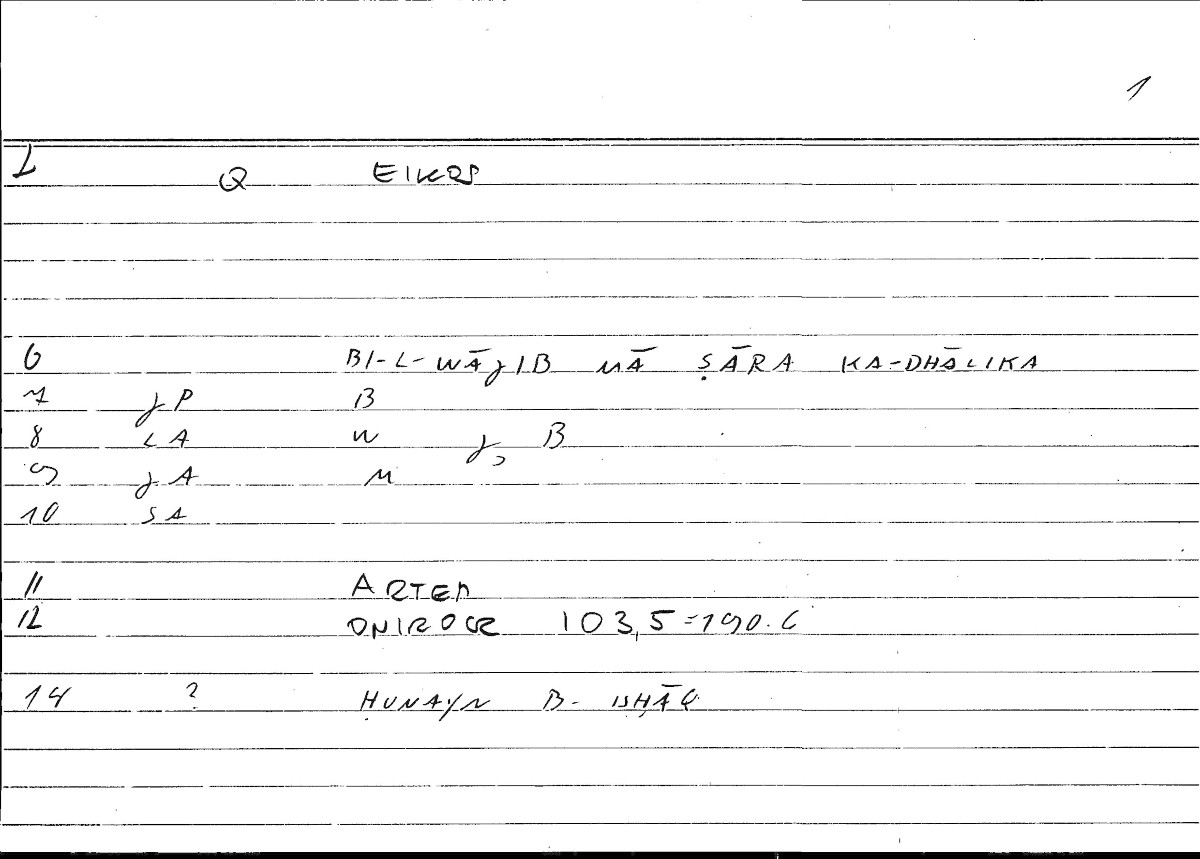 1
L Q EIKOS
6 BI-L-WĀJIB MĀ ṢĀRA KA-DHĀLIKA
7 JP B
8 LA W J, B
9 JA M
10 SA
11 ARTEM
12 ONIROCR 103,5=190.6
14 ? ḤUNAYN B- ISḤĀQ